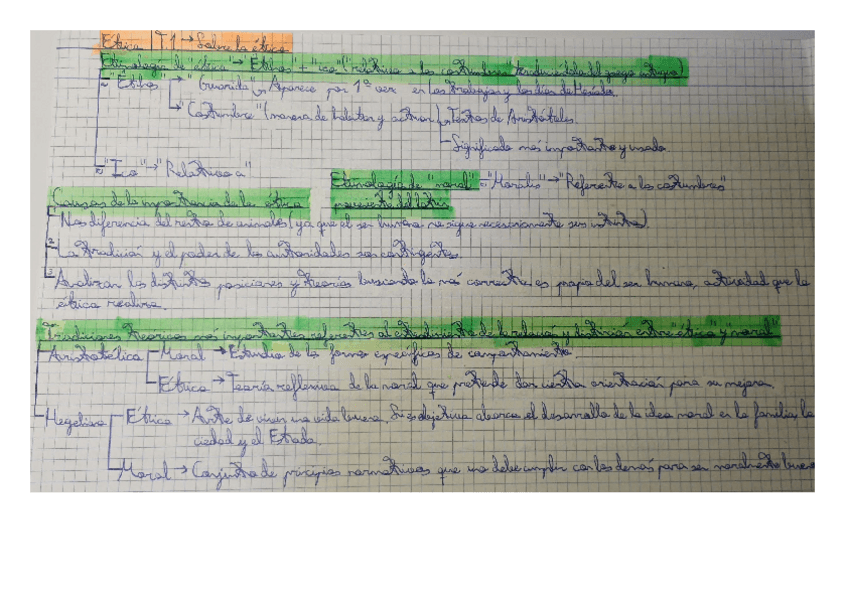 Ética | T1 → Sobre la ética
Etimología de "ética" → "Ethos" + "ica" (relativo a las costumbres, traducido del griego antiguo)
"Ethos" → "Guarida" ↳ Aparece por 1ª vez en Los Trabajos y los días de Hesíodo.
↳ "Costumbre" (manera de habitar y actuar) ↳ Textos de Aristóteles.
Significado más importante y usado.
"Ica" → "Relativo a"
Etimología de "moral" = "Moralis" → "Referente a las costumbres"
proveniente del latín
Causas de la importancia de la ética
1 Nos diferencia del resto de animales (ya que el ser humano no sigue necesariamente sus instintos).
2 La tradición y el poder de las autoridades son contingentes.
3 Analizan las distintas posiciones y teorías buscando la más correcta es propia del ser humano, actividad que la
ética realiza.
Tradiciones teóricas más importantes referentes al estudio de la relación y distinción entre "ética" y "moral"
Aristotélica Moral → Estudia de las formas específicas de comportamiento.
Ética → Teoría reflexiva de la moral que pretende dar cierta orientación para su mejora.
Hegeliana Ética → Arte de vivir una vida buena. Su objetivo abarca el desarrollo de la idea moral en la familia, la
ciedad y el Estado.
Moral → Conjunto de principios normativos que uno debe cumplir con los demás para ser moralmente bueno